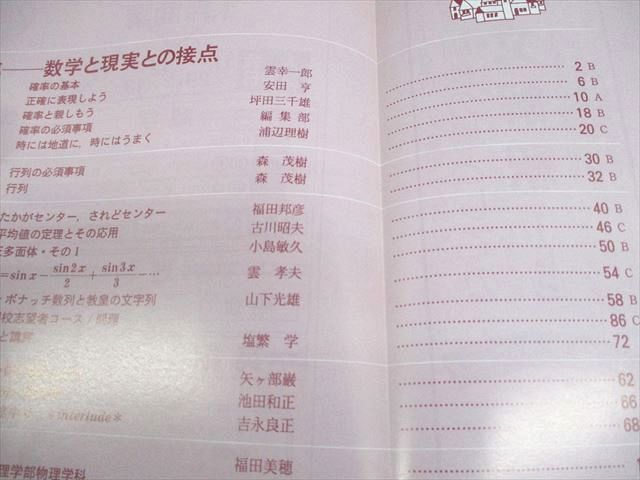 ――数学と現実との接点
確率の基本 雲幸一郎 2 B
正確に表現しよう 安田 亨 6 B
確率と親しもう 坪田三千雄 10 A
確率の必須事項 編集部 18 B
時には地道に，時にはうまく 浦辺理樹 20 C
行列の必須事項 森 茂樹 30 B
行列 森 茂樹 32 B
たかがセンター，されどセンター 福田邦彦 40 B
平均値の定理とその応用 古川昭夫 46 C
正多面体・その1 小島敏久 50 B
=sin x − sin2x/2 + sin3x/3 −… 雲 孝夫 54 C
ボナッチ数列と教皇の文字列 山下光雄 58 B
校志望者コース／ 86 C
と講 塩繁 学 72
矢ヶ部巌 62
池田和正 66
interlude＊ 吉永良正 68
理学部物理学科 福田美穂 1